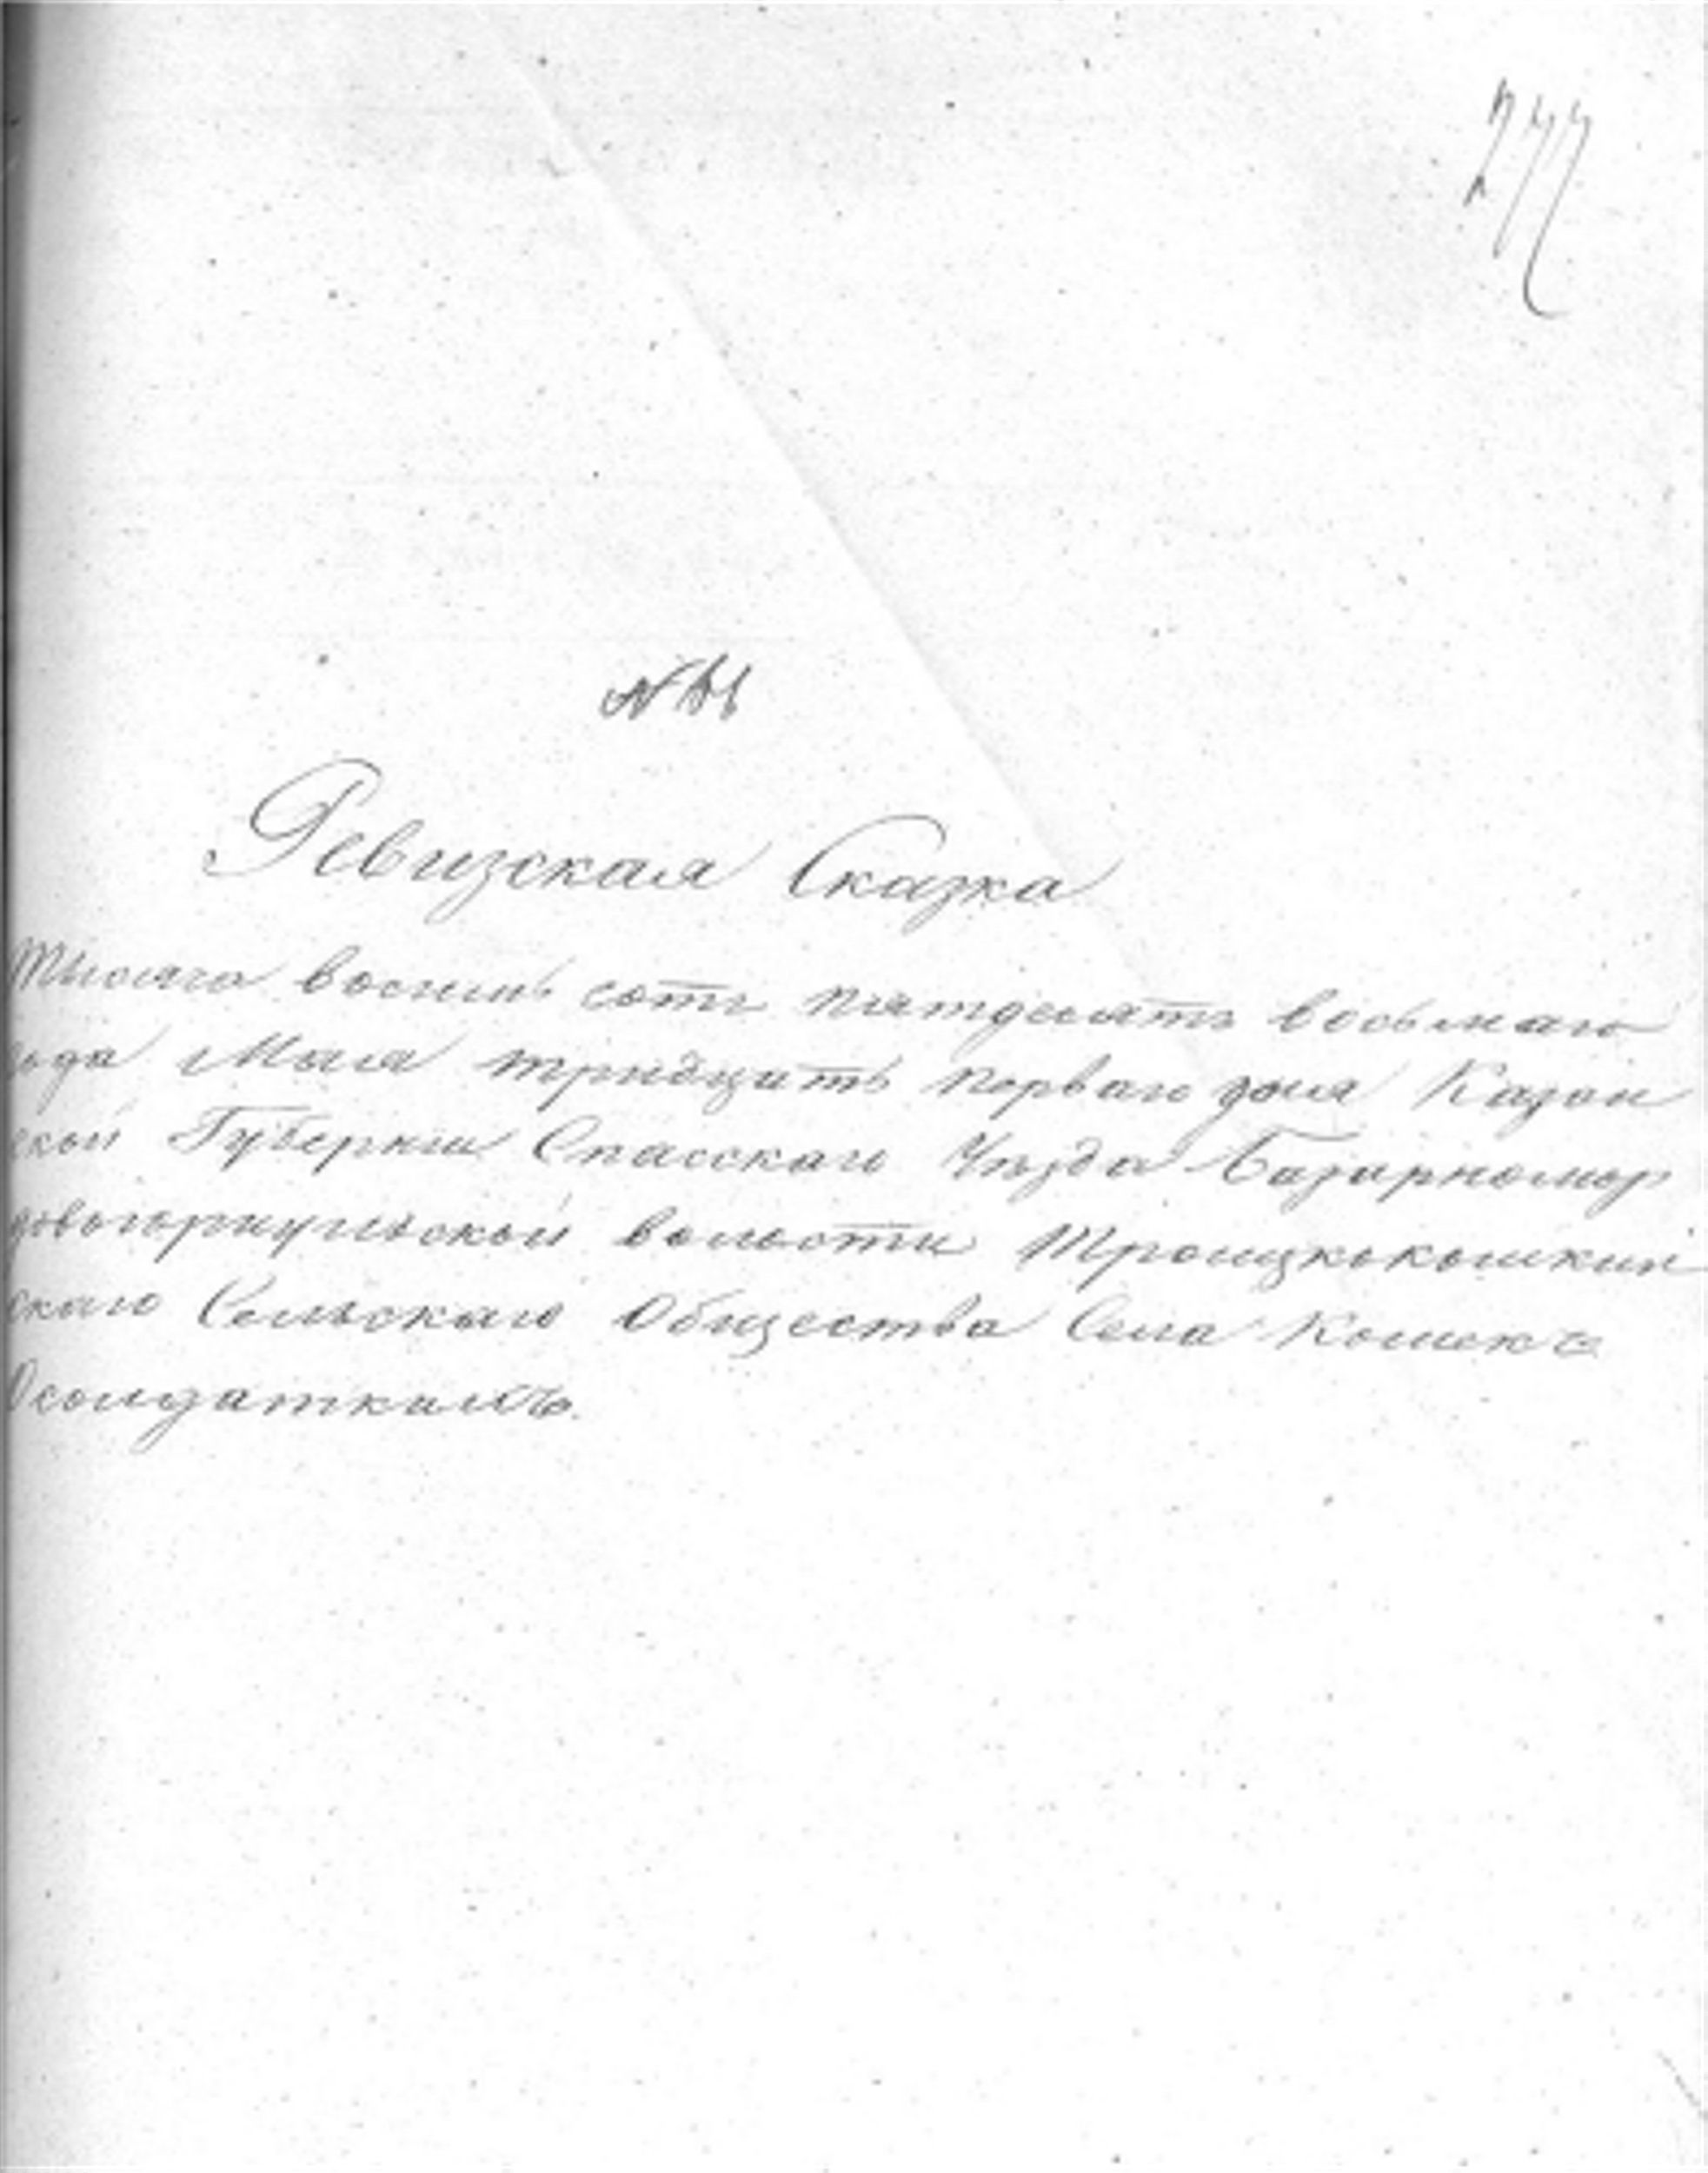 277
Ревизская Сказка
Тысяча восемь сотъ пятдесятъ восьмаго
года Мая тридцать перваго дня Казан
ской Губерніи Спасскаго Уѣзда Базарномор
довогоркульской волости Троицкокошкин
скаго Сельскаго Общества Села Кошекъ
Осолдаткахъ.